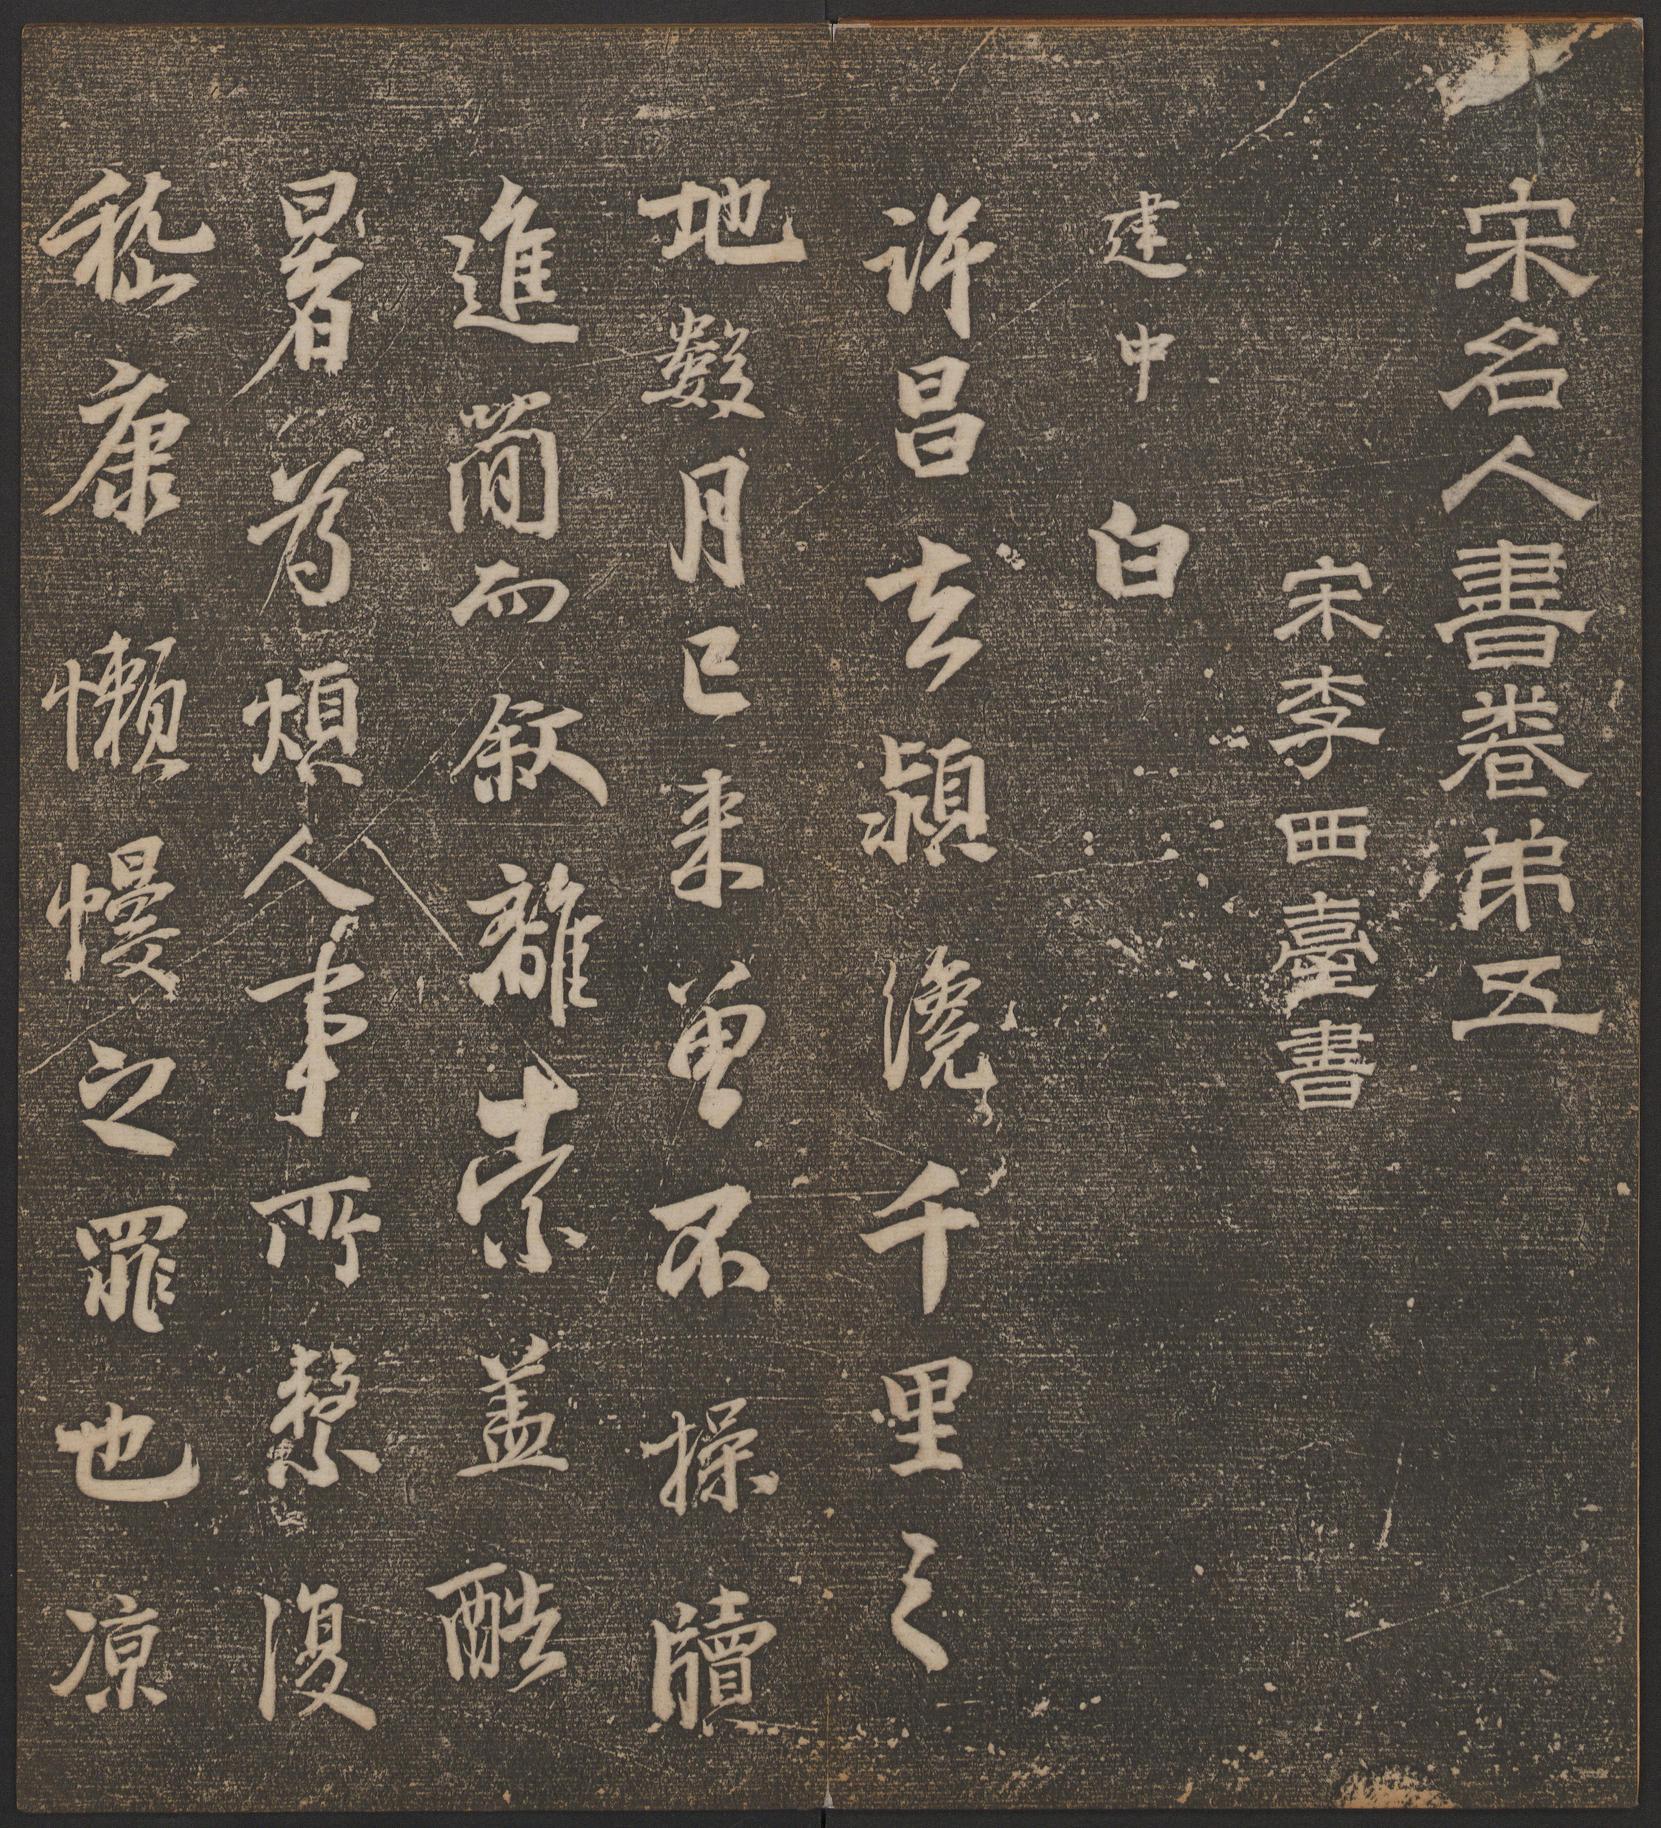 宋名人書卷弟五
宋李西臺書
建中白
許昌去潁濱千里之
地數月已來曾不操牘
進簡而叙離索盖酷
暑若煩人事所繫復
嵇康懶慢之罪也凉